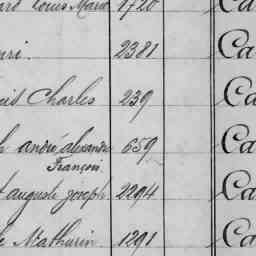 Louis Marie 1720 Ca
2381 Ca
Charles 239 Ca
andré alexandre 659 Ca
François
auguste joseph 2294 Ca
Mathurin 1291 Ca